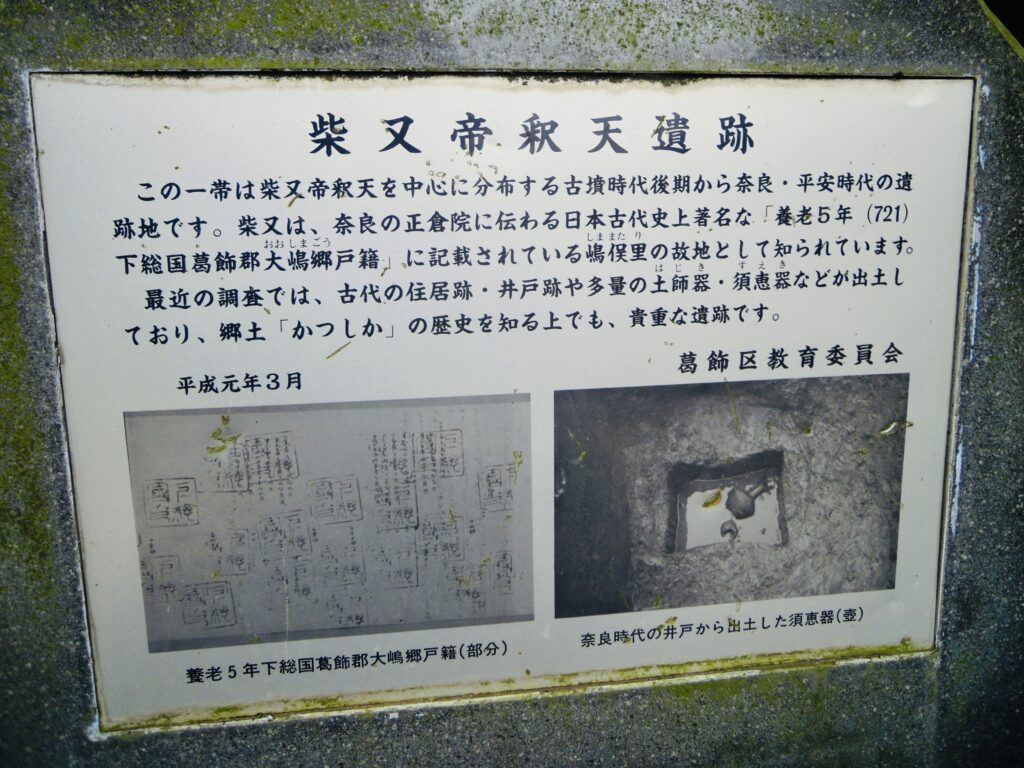 柴又帝釈天遺跡
この一帯は柴又帝釈天を中心に分布する古墳時代後期から奈良・平安時代の遺
跡地です。柴又は、奈良の正倉院に伝わる日本古代史上著名な「養老5年(721)
おおしまごう しままたり
下総国葛飾郡大嶋郷戸籍」に記載されている嶋俣里の故地として知られています。
はじき すえき
最近の調査では、古代の住居跡・井戸跡や多量の土師器・須恵器などが出土し
ており、郷土「かつしか」の歴史を知る上でも、貴重な遺跡です。
葛飾区教育委員会
平成元年3月
養老5年下総国葛飾郡大嶋郷戸籍(部分)
奈良時代の井戸から出土した須恵器(壺)